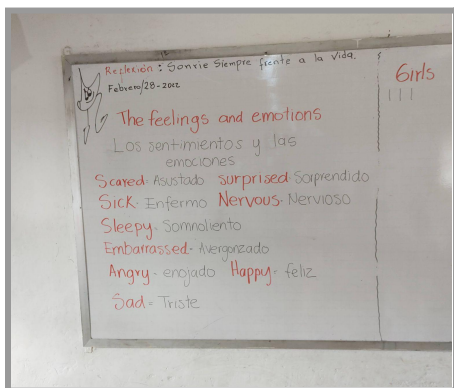 Reflexión: Sonrie Siempre frente a la vida.
Febrero/28-2022
The feelings and emotions
Los sentimientos y las
emociones
Scared- Asustado surprised- Sorprendido
Sick- Enfermo Nervous- Nervioso
Sleepy- Somnoliento
Embarrassed- Avergonzado
Angry- enojado Happy- feliz
Sad= Triste
Girls